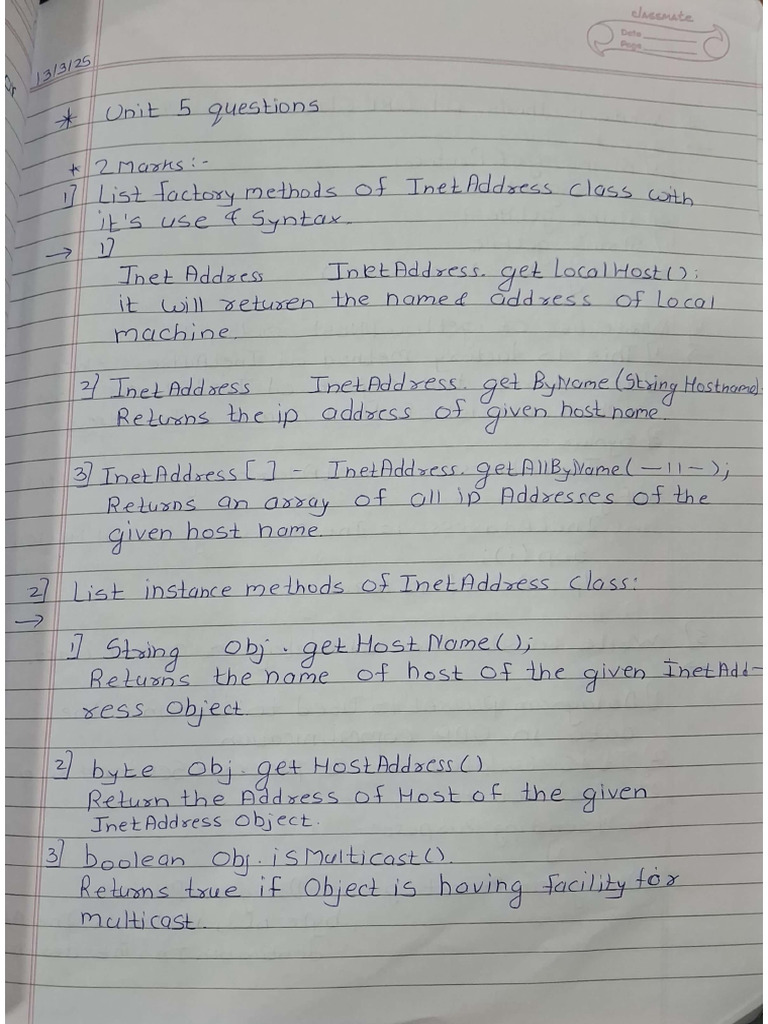 classmate
Date
Page
13/3/25
* Unit 5 questions
* 2 Marks :-
1] List factory methods of InetAddress class with
it's use & Syntax.
→ 1]
Inet Address InetAddress. get LocalHost();
it will returen the name & address of Local
machine.
2] InetAddress InetAddress. get ByName (String Hostname).
Returns the ip address of given host name.
3] InetAddress [ ] - InetAddress. getAllByName( —11—);
Returns an array of all ip Addresses of the
given host name.
2] List instance methods of InetAddress class:
→
1] String Obj . get Host Name();
Returns the name of host of the given InetAdd-
ress Object
2] byte Obj. get HostAddress()
Return the Address of Host of the given
InetAddress Object.
3] boolean Obj. isMulticast().
Returns true if Object is having facility for
multicast.